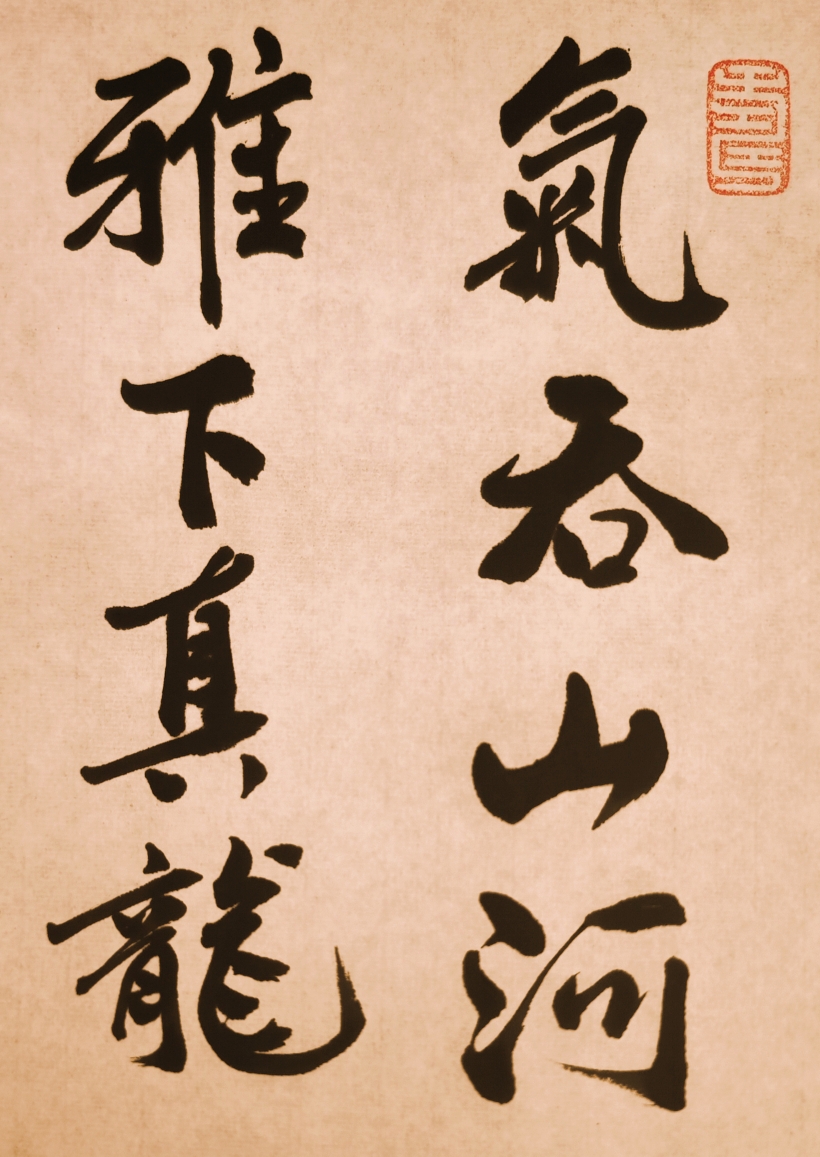 氣吞山河
雅下真龍